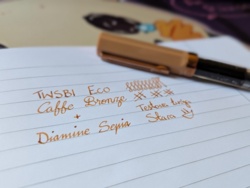 TWSBI Eco
Caffe Bronze
+
Diamine Sepia